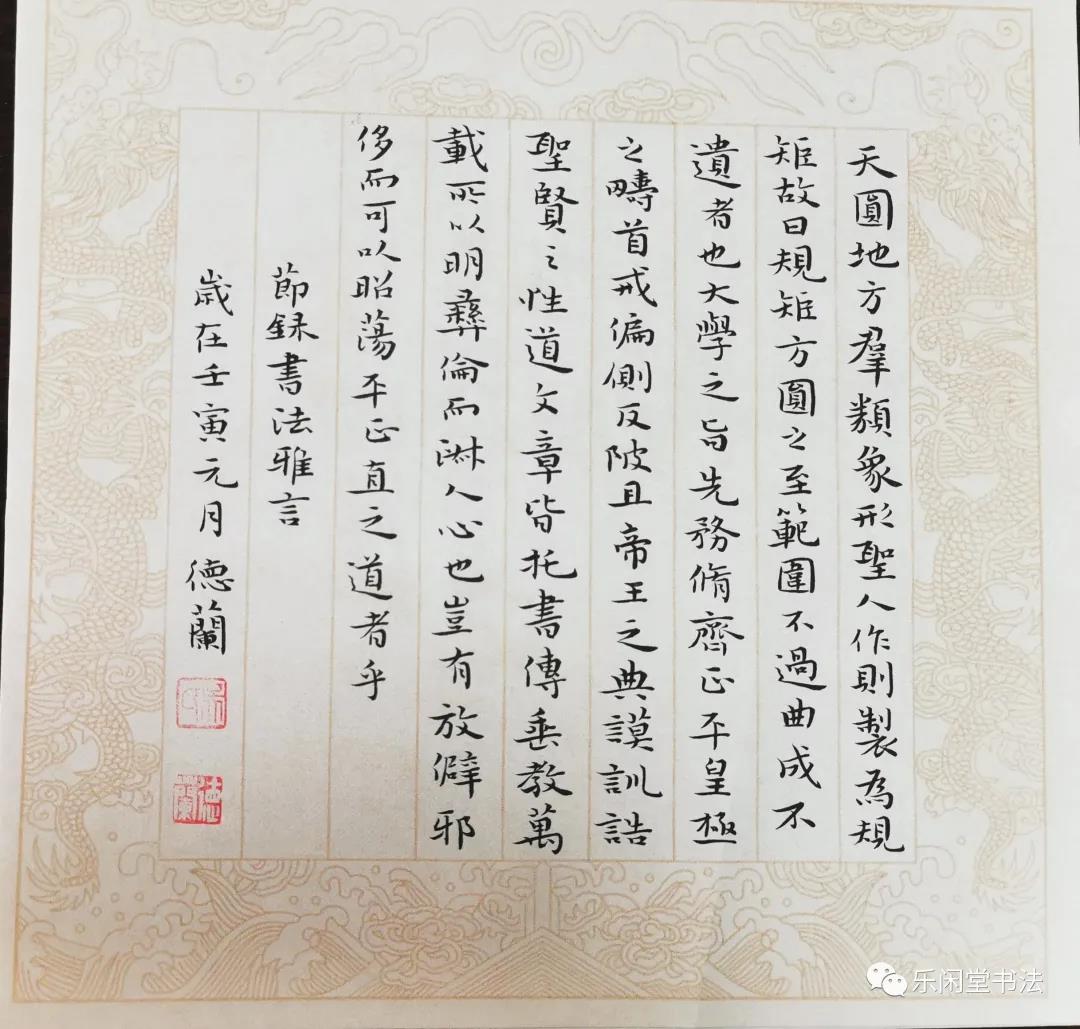 天圓地方羣類象形聖人作則製為規
矩故曰規矩方圓之至範圍不過曲成不
遺者也大學之旨先務脩齊正平皇極
之疇首戒偏側反陂且帝王之典謨訓誥
聖賢之性道文章皆托書傳垂教萬
載所以明彝倫而淋人心也豈有放僻邪
侈而可以昭蕩平正直之道者乎
節録書法雅言
歲在壬寅元月德蘭
德蘭
乐闲堂书法